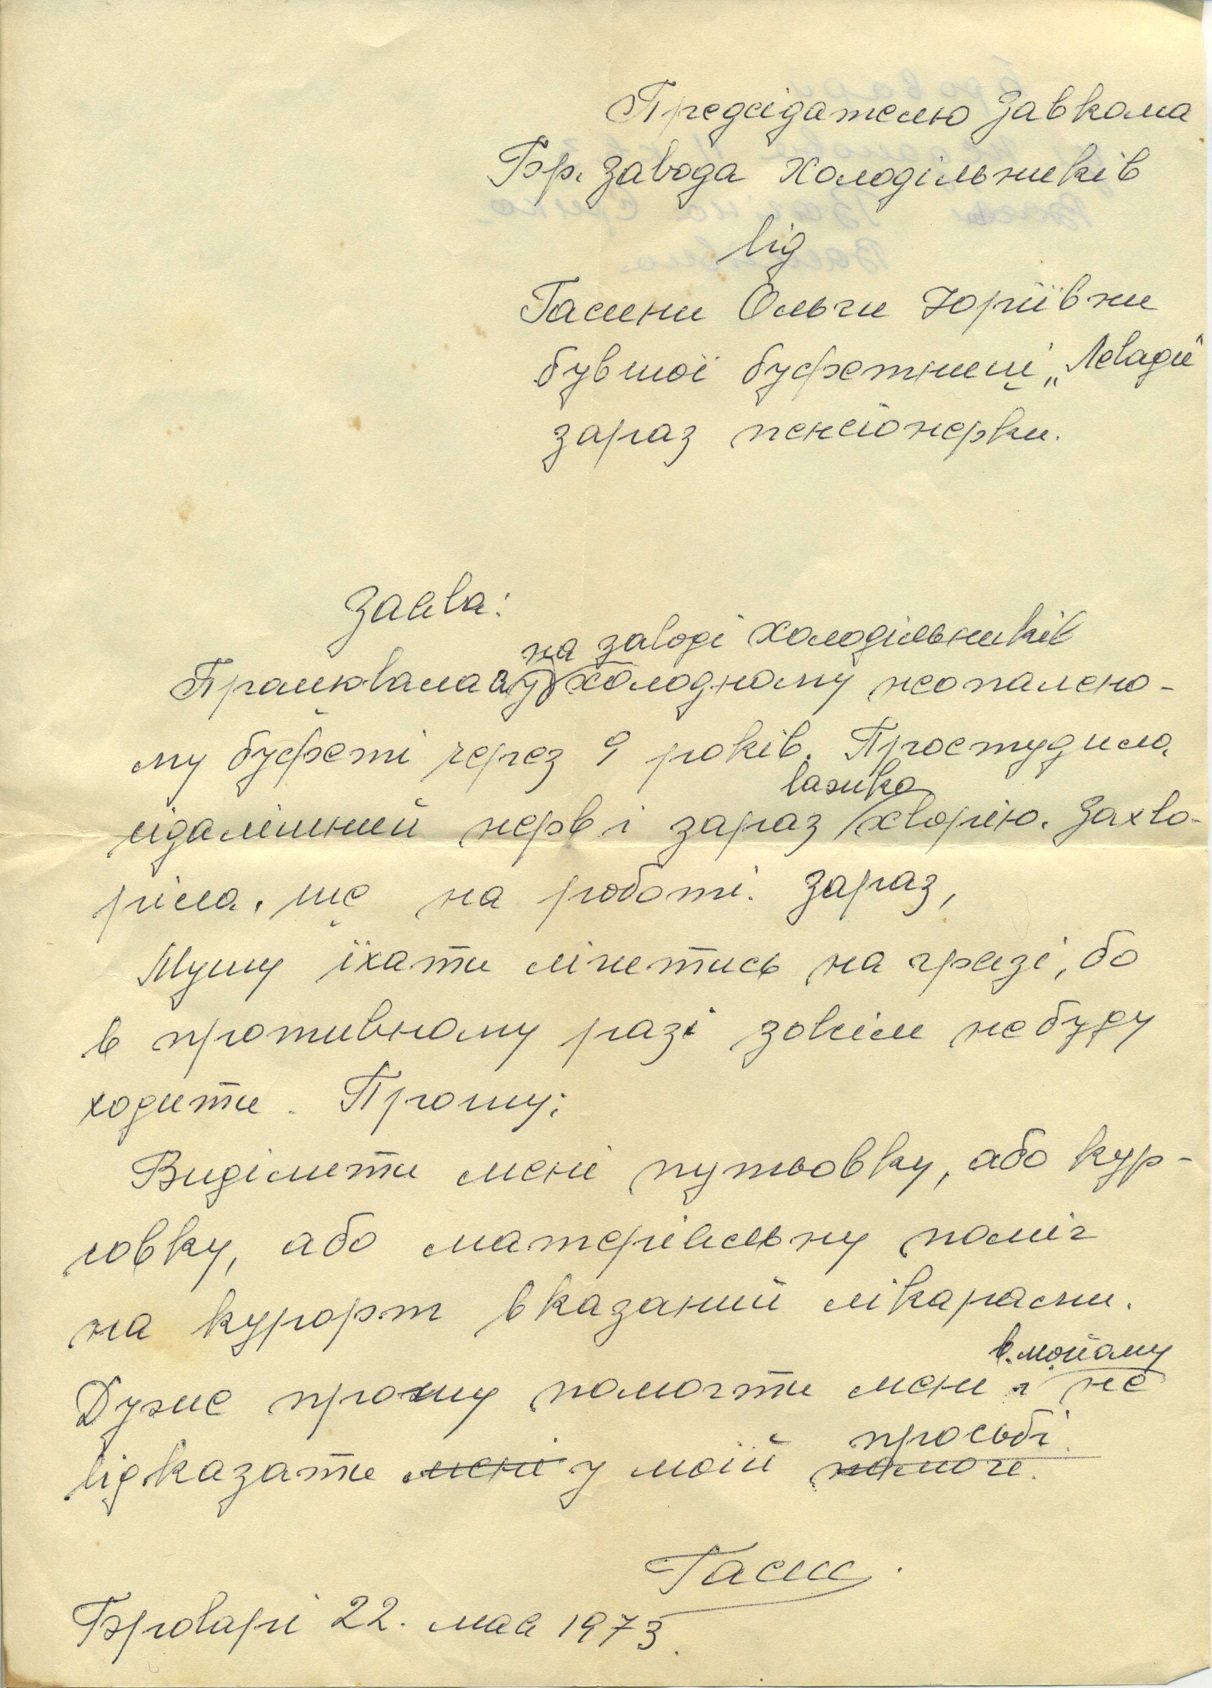 Предсідателю Завкома
Бр. завода Холодільників
від
Гасини Ольги Юріївни
бувшої буфетниці „Левади"
зараз пенсіонерки.
Заява:
на заводі холодільників
Працювала у холодному неопалено-
му буфеті через 9 років. Простудила
сідалищний нерв і зараз важко хворію. Захво-
ріла, ще на роботі. Зараз,
Мушу їхати лічитись на грязі, бо
в противному разі зовсім не буду
ходити. Прошу:
Виділити мені путьовку, або кур-
совку, або матеріяльну поміч
на курорт вказаний лікарами.
в мойому
Дуже прошу помогти мені і не
відказати мені у моїй просьбі.
помочи.
Гасин
Броварі 22. мая 1973.